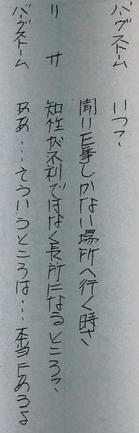 バーグストーム　いつ？
聞いた事しかない場所へ行く時さ
リサ　知性が不利ではなく長所になるところ？
バーグストーム　ああ…そういうところは…本当にあるよ